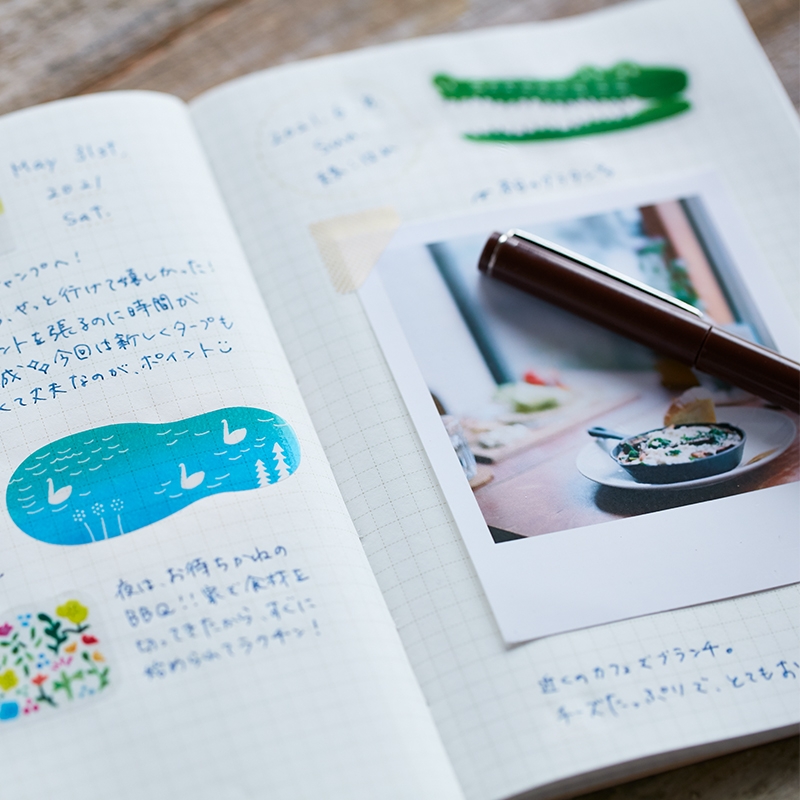 May 31st.
2021
Sat.
ャンプへ!
やっと行けて嬉しかった!
ントを張るのに時間が
成✧今回は新しくタープも
くて大丈夫なのが、ポイント
夜は、お待ちかねの
BBQ!!家で食材を
切ってきたから、すぐに
始められてラクチン!
Sun.
近くのカフェでブランチ。
チーズたっぷりで、とてもお